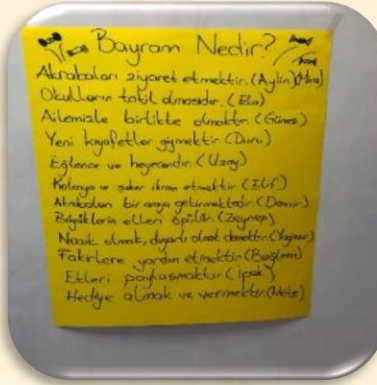 Bayram Nedir?
Akrabaları ziyaret etmektir. (Aylin)
Okulların tatil olmasıdır. (Ela)
Ailemizle birlikte olmaktır. (Güneş)
Yeni kıyafetler giymektir. (Duru)
Eğlence ve heyecandır. (Uzay)
Kolonya ve şeker ikram etmektir. (Elif)
Akrabaları bir araya getirmektedir. (Demir)
Büyüklerin elleri öpülür. (Zeynep)
Nazik olmak, duyarlı olmak demektir. (Yağmur)
Fakirlere yardım etmektir. (Buğlem)
Etleri paylaşmaktır. (İpek)
Hediye almak ve vermektir. (Mete)